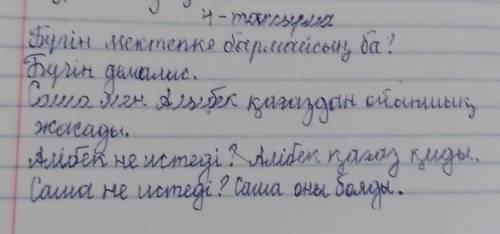 4-тапсырма
Бүгін мектепке бармайсың ба?
Бүгін демалыс.
Саша мен Әлібек қағаздан ойыншық
жасады.
Әлібек не істеді? Әлібек қағаз қиды.
Саша не істеді? Саша оны бояды.